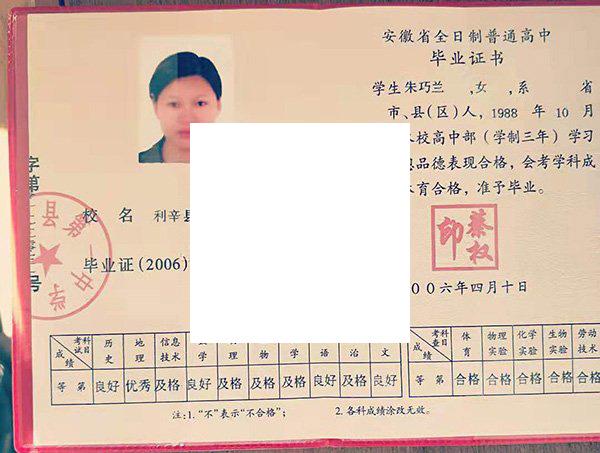 安徽省全日制普通高中
毕业证书
学生朱巧兰 ,女 ,系 省
市、县(区)人, 1988 年 10 月
校高中部(学制三年)学习
品德表现合格,会考学科成
育合格,准予毕业。
蔡权印
〇〇六年四月十日
字第
号
县第一中学
校 名 利辛县
毕业证(2006)
考试科目 成绩 历史 地理 信息技术 学 理 物 学 语 治 文
等 第 良好 优秀 及格 良好 及格 及格 及格 良好 及格 良好
考查科目 成绩 体育 物理实验 化学实验 生物实验 劳动技术
等 第 合格 合格 合格 合格 合格
注:1. “不”表示“不合格”; 2. 各科成绩涂改无效。